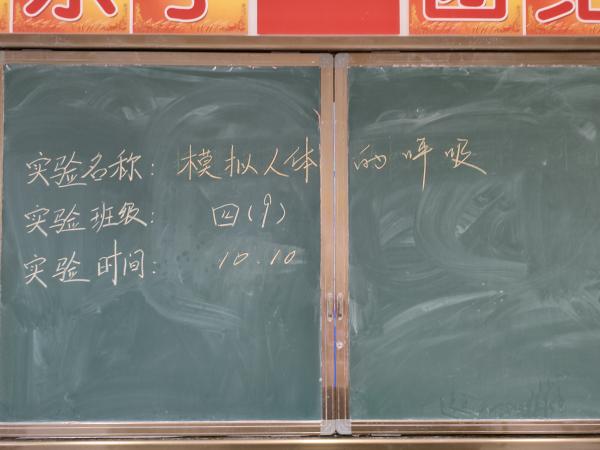 实验名称：模拟人体的呼吸
实验班级：四(9)
实验时间：10.10